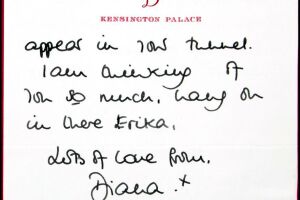 D
KENSINGTON PALACE
appear in your tunnel.
I am thinking of
you so much, hang on
in there Erika,
Lots of love from,
Diana. x